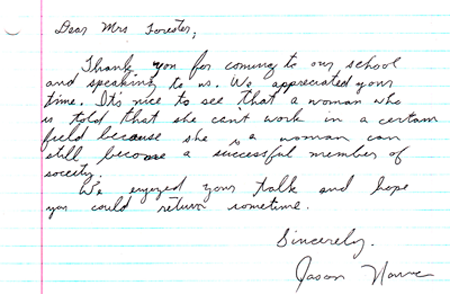 Dear Mrs Forester,
Thank you for coming to our school
and speaking to us. We appreciated your
time. It's nice to see that a woman who
is told that she can't work in a certain
field because she is a woman can
still become a successful member of
society.
We enjoyed your talk and hope
you could return sometime.
Sincerely.
Jason